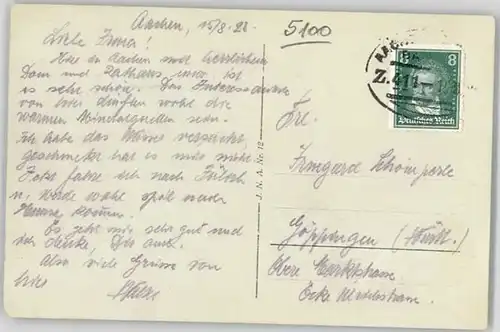 Aachen, 15/8.28
5100
Liebe Irma!
Hier in Aachen mit herrlichem
Dom und Rathaus usw. ist
es sehr schön. Das Interessanteste
von hier dürften wohl die
warmen Mineralquellen sein.
Ich habe das Wasser versucht,
geschmeckt hat es mir nicht.
Jetzt fahre ich nach
u. werde wohl spät nach
Hause kommen.
Es geht mir sehr gut und
ich denke, Dir auch.
Also viele Grüsse von
J.N.A. Nr. 12
8 8
Z.411
Deutsches Reich
Frl.
Irmgard
Göppingen (Württ.)
Obere Marktstrasse
Ecke